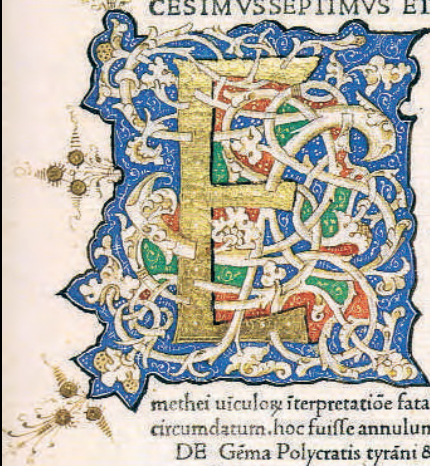 CESIMVSSEPTIMVS ET
E
methei uículoꝝ ĩterpretatiõe fata
circumdatum.hoc fuiſſe annulun
DE Gẽma Polycratis tyrãni &